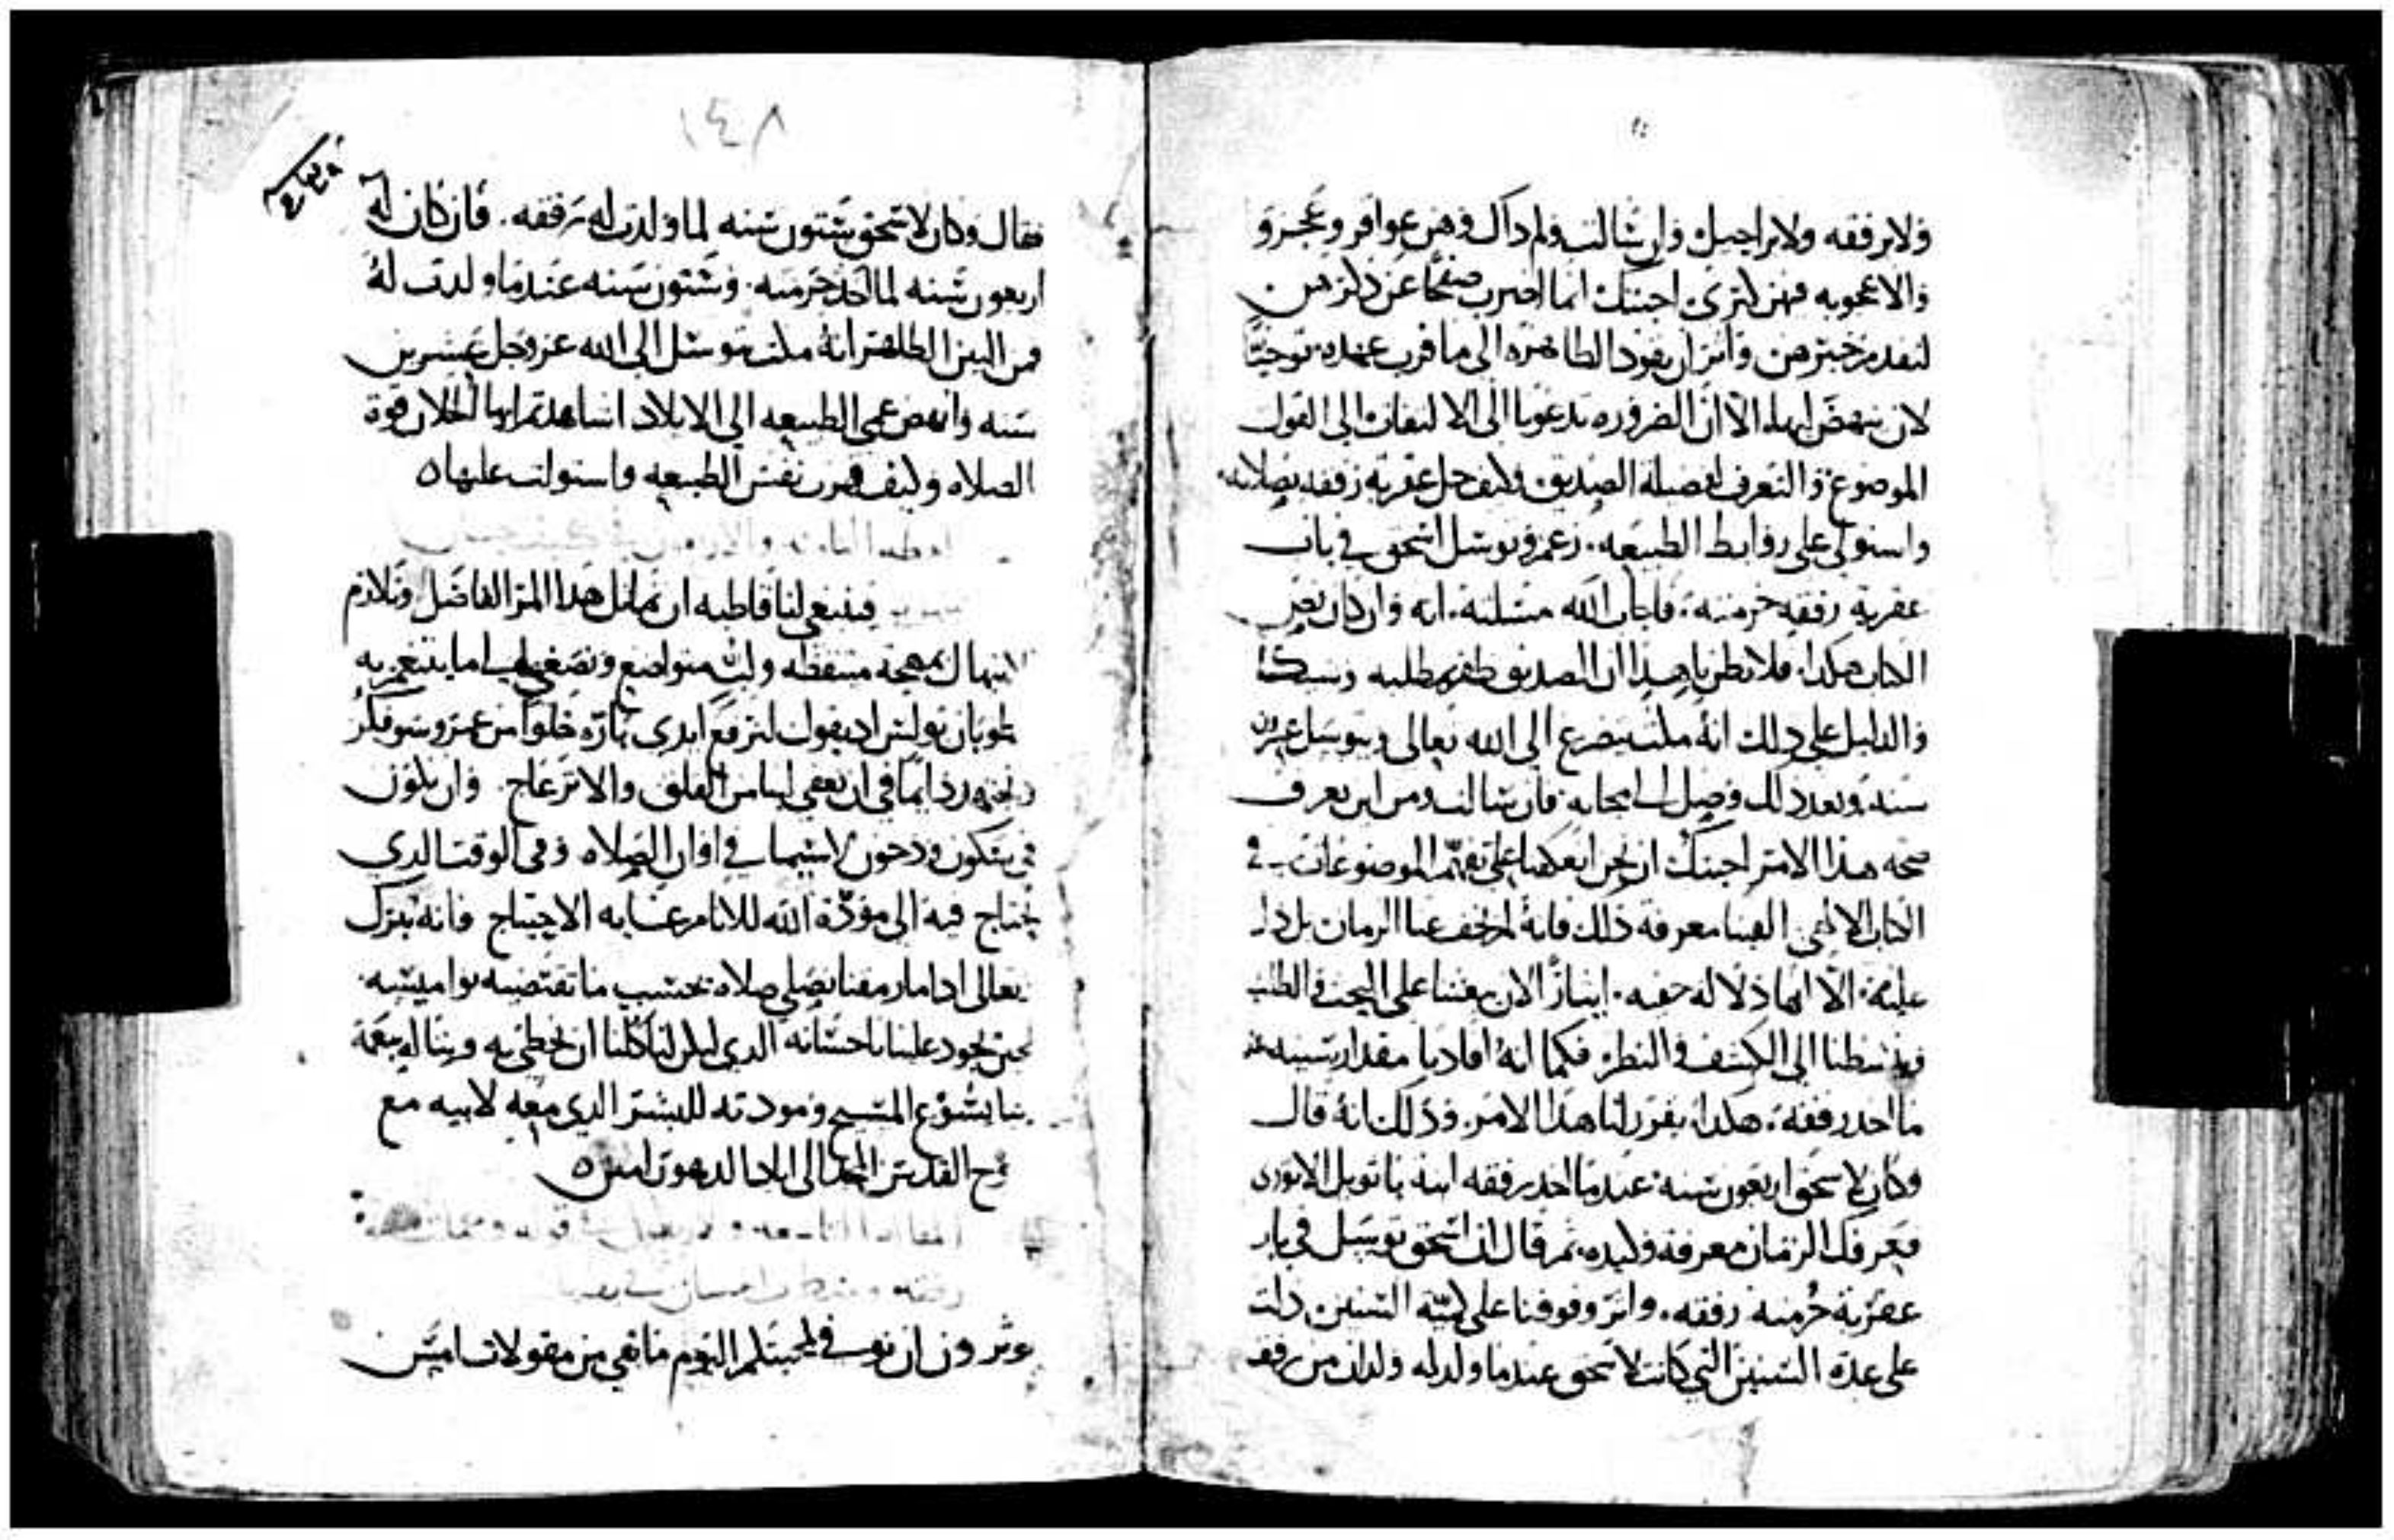 ولا رفقه ولا راحيل وان سالت ولم داك وهن عواقر وعجزو
والاعجوبه فهن كثرى اجبتك انما اضرب صفحا عن ذكرهن
لتقدم خبرهن واثر ان يقود الطاهره الى ما قرب عهده توخيا
لان ينهض اليها الا ان الضروره تدعونا الى الالتفات الى القول
الموضوع والتعرف لفضيلة الصديق وكيف حل عقرية رفقه بصلاته
واستولى على روابط الطبيعه. زعم وتوسل اسحق في باب
عقرية رفقه حرمته. فاجاب الله مسلته. انه وان كان نص
الكتاب هكدا. فلا تظن يا هدا ان الصديق ظفر بمطلبه وشيكا
والدليل على دلك انه ملث يتضرع الى الله تعالى ويتوسل عشرين
سنه وبعد دلك وصل الى ايجابه فان سالت ومن اين تعرف
صحه هدا الامر اجبتك ان نحن انعكفنا على تفهم الموضوعات في
الكتاب الالاهي الفينا معرفة ذلك فانه لم يخف عنا الزمان بل دل
عليه. الا انها دلاله خفيه. ايثارا لان يحثنا على البحث والطلب
وينشطنا الى الكشف والنظر فكما انه افادنا مقدار سنيه عند
ما اخد رفقه. هكدا يقرر لنا هدا الامر. وذلك انه قال
وكان لاسحق اربعون سنه عندما اخد رفقه ابنه باتويل الانوري
فعرفك الزمان معرفة وكيده. ثم قال ان اسحق توسل في باب
عقرية حرمته رفقه. واثر وقوفنا على كمية السنين دلت
على عدة السنين التي كانت لاسحق عندما ولد له ولدان من رفقه
١٤٨
فقال وكان لاسحق ستون سنه لما ولدت له رفقه. فان كان له
اربعون سنه لما اخد حرمته. وستون سنه عندما ولدت له
فمن البين الظاهر انه ملث يتوسل الى الله عز وجل عشرين
سنه وانهض عمي الطبيعه الى الايلاد اشاهدتم ايها الخلان قوة
الصلاه وكيف قهرت نفس الطبيعه واستولت عليها
العظه التاسعه والاربعون في
فينبغي لنا قاطبه ان نماثل هدا المر الفاضل ونلازم
الابتهال بمهجة متيقظه ولب متواضع ونصغي الى ما يتنغم به
طوبان بولس اد يقول لنرفع ايدي باره خلوا من غيز وسو فكر
ونجتهد دايما في ان نعفي لبنا من القلق والانزعاج. وان نكون
في سكون ودحون لاسيما في اوان الصلاه وفي الوقت الدي
نحتاج فيه الى مودة الله للانام غاية الاحتياج فانه تبرك
تعالى ادا ما رمقنا نصلي صلاه بحسب ما تقتضيه نواميسه
حين يجود علينا باحسانه الدي ليكن لنا كلنا ان نحظى به وبناله بنعمة
ربنا يسوع المسيح ومودته للبشر الدي معه لابيه مع
روح القدس المجد الى ابد الدهور امين
المقاله التاسعه والاربعون في قوله
رفقه
عوثرون ان نوفي لمحبتكم اليوم ما بقي من مقولات امس